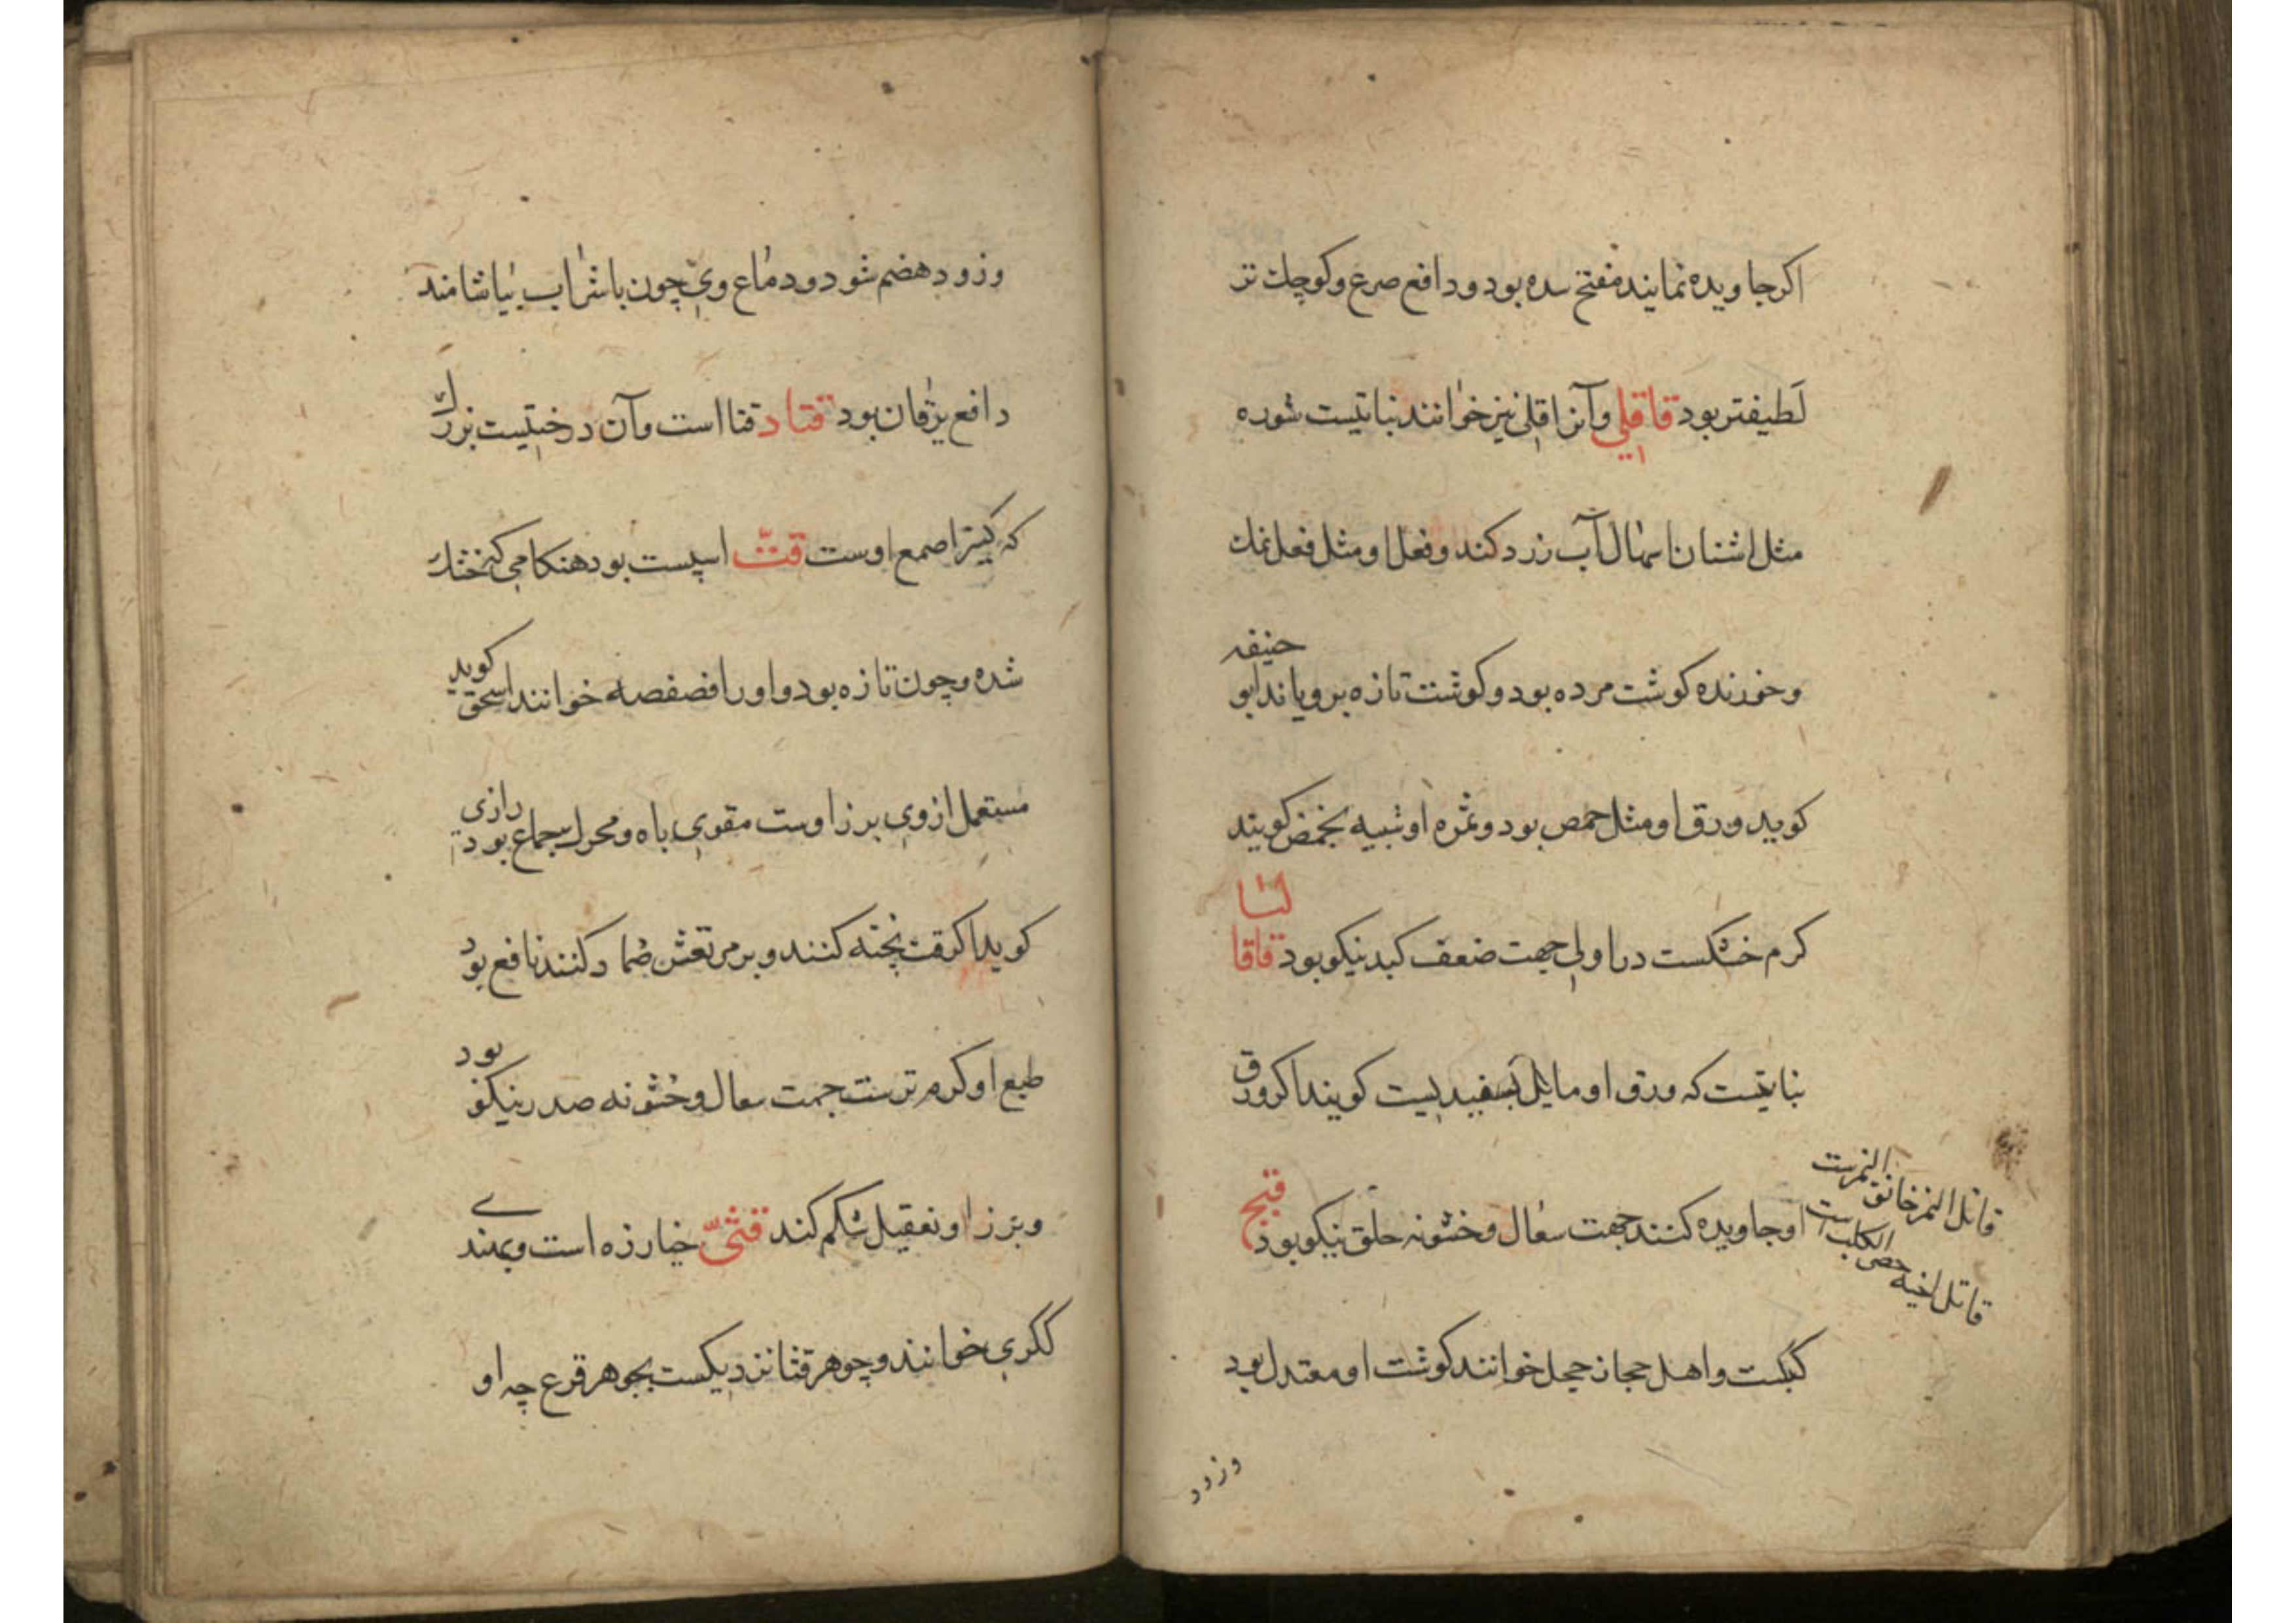 اکر جاویده نمایند مفتح سده بود و دافع صرع و کوچک تر
لطیفتر بود قاقلی وآنرا قلی نیز خوانند نباتیست شوره
مثل اشنان اسهال آب زرد کند و فعل او مثل فعل نمک
و خورنده کوشت مرده بود و کوشت تازه برویاند ابو حنیفه
کوید ورق او مثل حمص بود و ثمره او شبیه بحمض کویند
کرم خشکست در اولی جهت ضعف کبد نیکو بود قاقا لتا
نباتیست که ورق او مایل بسفیدیست کویند اکر ورق
او جاویده کنند جهت سعال و خشونه حلق نیکو بود قبج
کبکست و اهل حجاز حجل خوانند کوشت او معتدل بود
قاتل النمر خانق النمرست
قاتل اخیه خصی الکلب است
وزود
وزود هضم شود و دماغ وی چون با شراب بیاشامند
دافع یرقان بود قتاد قتا است وآن درختیست بزرک
که کتیرا صمع اوست قتّ اسپست بود هنکامی که خشک
شده و چون تازه بود و اورا فصفصه خوانند اسحق کوید
مستعمل از وی بزر اوست مقوی باه و محرک جماع بود رازی
کوید اکر قت پخته کنند و بر مرتعش ضماد کنند نافع بود
طبع او کرم ترست جهت سعال و خشونه صدر نیکو بود
و بزر او تعقیل شکم کند قثی خیارزه است و بهندی
ککری خوانند و جوهر قثا نزدیکست بجوهر قرع چه او